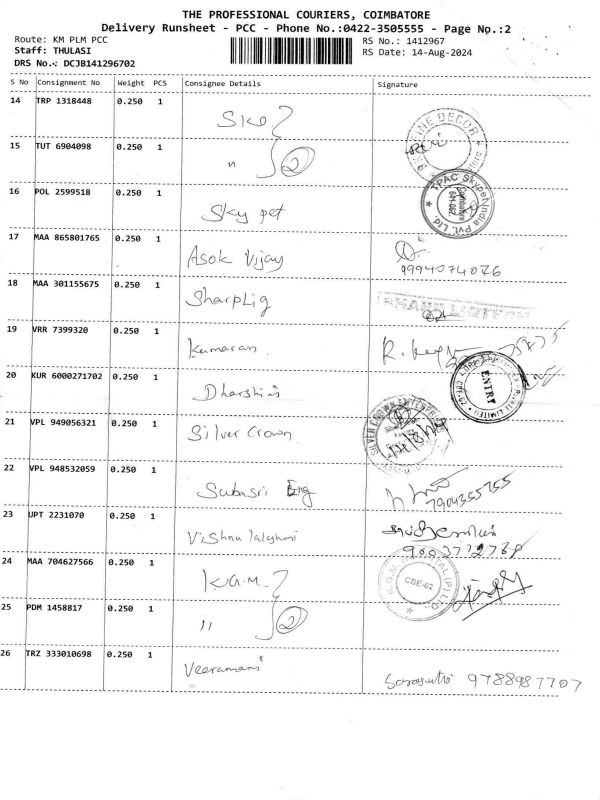 THE PROFESSIONAL COURIERS, COIMBATORE
Delivery Runsheet - PCC - Phone No.:0422-3505555 - Page No.:2
Route: KM PLM PCC
RS No.: 1412967
Staff: THULASI
RS Date: 14-Aug-2024
DRS No.: DCJB141296702
S No Consignment No Weight PCS Consignee Details Signature
14 TRP 1318448 0.250 1 SKD
15 TUT 6904098 0.250 1 " 2
16 POL 2599518 0.250 1 Sky pet
17 MAA 865801765 0.250 1 Asok Vijay 9994074026
18 MAA 301155675 0.250 1 SharpLig
19 VRR 7399320 0.250 1 Kumaran. R.
20 KUR 6000271702 0.250 1 Dharshini ENTRY
21 VPL 949056321 0.250 1 Silver Crown SILVER CROWN ENTERPRISES
22 VPL 948532059 0.250 1 Subasri Eng 7904355755
23 UPT 2231070 0.250 1
24 MAA 704627566 0.250 1 K.G.M. CBE-62
25 PDM 1458817 0.250 1 " 2
26 TRZ 333010698 0.250 1 Veeramani 9788987707